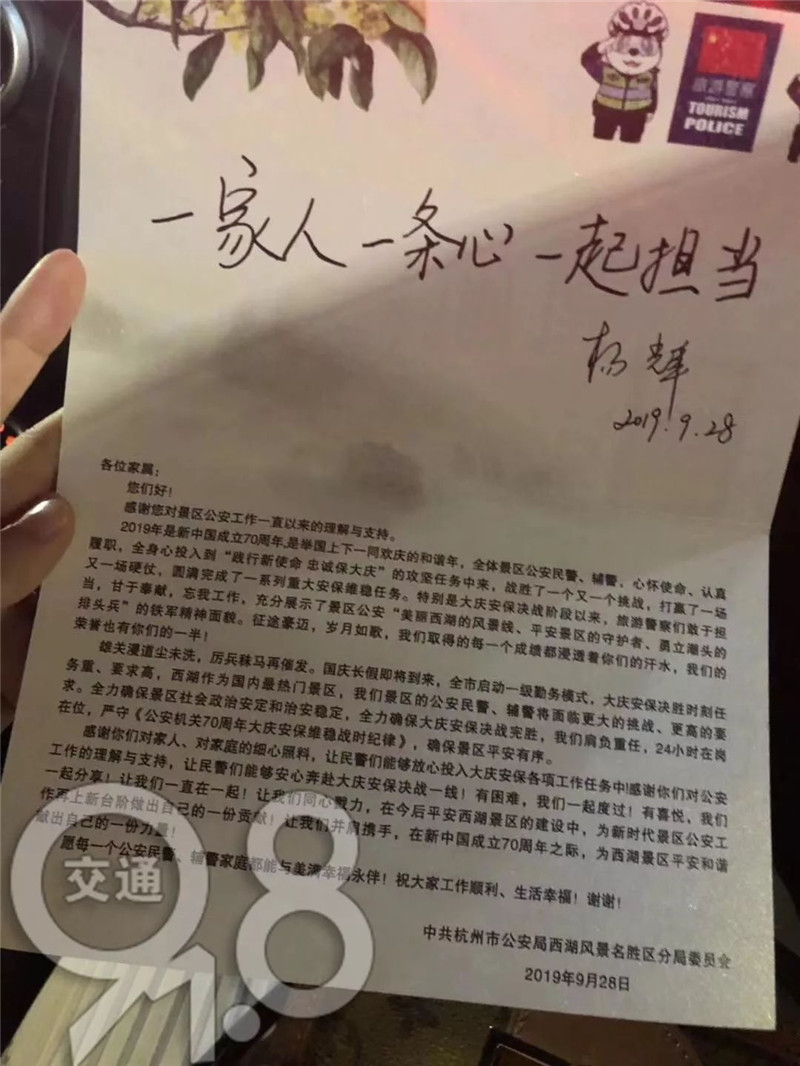 旅游警察
TOURISM
POLICE
一家人 一条心 一起担当
杨辉
2019.9.28
各位家属：
您们好！
感谢您对景区公安工作一直以来的理解与支持。
2019年是新中国成立70周年,是举国上下一同欢庆的和谐年，全体景区公安民警、辅警，心怀使命、认真
履职，全身心投入到“践行新使命 忠诚保大庆”的攻坚任务中来，战胜了一个又一个挑战，打赢了一场
又一场硬仗，圆满完成了一系列重大安保维稳任务。特别是大庆安保决战阶段以来，旅游警察们敢于担
当，甘于奉献，忘我工作，充分展示了景区公安“美丽西湖的风景线、平安景区的守护者、勇立潮头的
排头兵”的铁军精神面貌。征途豪迈，岁月如歌，我们取得的每一个成绩都浸透着你们的汗水，我们的
荣誉也有你们的一半！
雄关漫道尘未洗，厉兵秣马再催发。国庆长假即将到来，全市启动一级勤务模式，大庆安保决胜时刻任
务重、要求高，西湖作为国内最热门景区，我们景区的公安民警、辅警将面临更大的挑战、更高的要
求。全力确保景区社会政治安定和治安稳定，全力确保大庆安保决战完胜，我们肩负重任，24小时在岗
在位，严守《公安机关70周年大庆安保维稳战时纪律》，确保景区平安有序。
感谢你们对家人、对家庭的细心照料，让民警们能够放心投入大庆安保各项工作任务中!感谢你们对公安
工作的理解与支持，让民警们能够安心奔赴大庆安保决战一线！有困难，我们一起度过！有喜悦，我们
一起分享！让我们一直在一起！让我们同心戮力，在今后平安西湖景区的建设中，为新时代景区公安工
作再上新台阶做出自己的一份贡献！让我们并肩携手，在新中国成立70周年之际，为西湖景区平安和谐
献出自己的一份力量！
愿每一个公安民警、辅警家庭都能与美满幸福永伴！祝大家工作顺利、生活幸福！谢谢！
中共杭州市公安局西湖风景名胜区分局委员会
2019年9月28日
交通
91.8